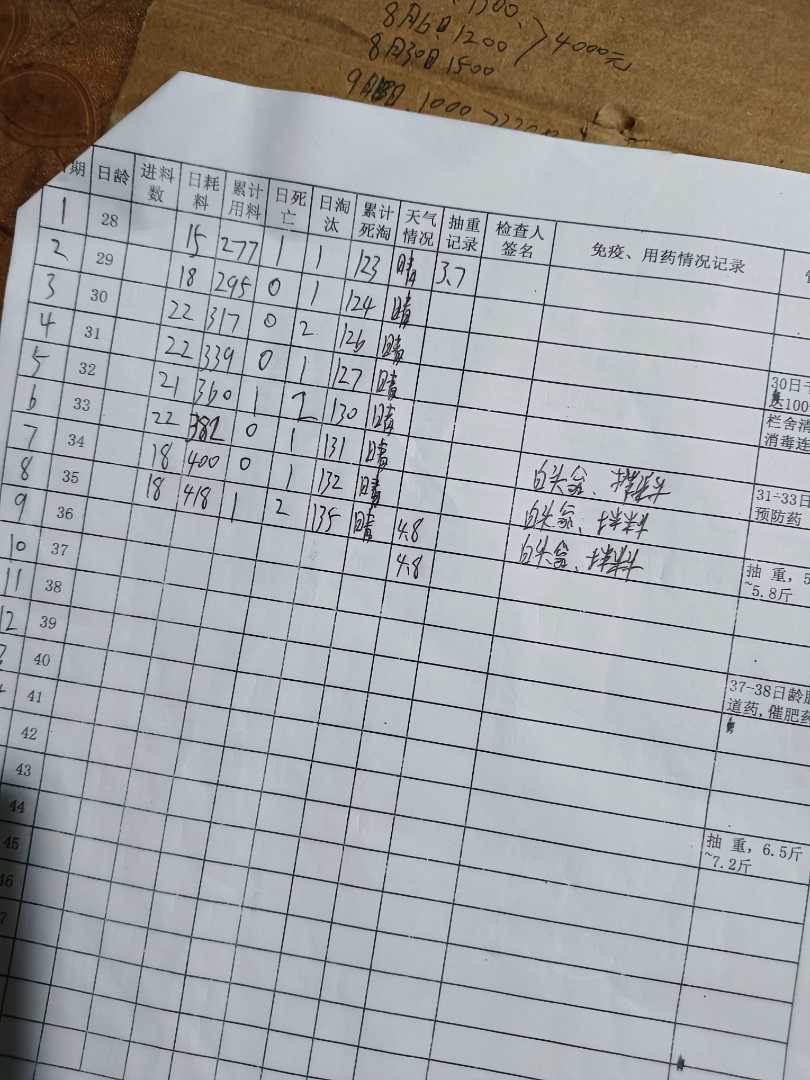 1500.
8月6日 1200 > 4000元
8月30日 1500
1000
期 日龄 进料数 日耗料 累计用料 日死亡 日淘汰 累计死淘 天气情况 抽重记录 检查人签名 免疫、用药情况记录
1 28 15 277 1 1 123 晴 3.7
2 29 18 295 0 1 124 晴
3 30 22 317 0 2 126 晴
4 31 22 339 0 1 127 晴
5 32 21 360 1 2 130 晴
6 33 22 382 0 1 131 晴
7 34 18 400 0 1 132 晴 白头翁、拌料
8 35 18 418 1 2 135 晴 4.8 白头翁、拌料
9 36 4.8 白头翁、拌料
10 37
11 38
12 39
40
41
42
43
44
45
46
7
30日
达100
栏舍清
消毒连
31-33日
预防药
抽 重，5
~5.8斤
37-38日龄
道药，催肥药
抽 重，6.5斤
~7.2斤